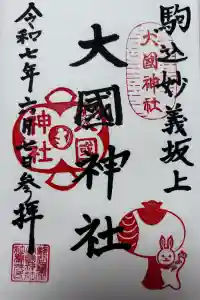 駒込妙義坂上
大國神社
大國神社
大國
神社
令和七年六月七日参拝